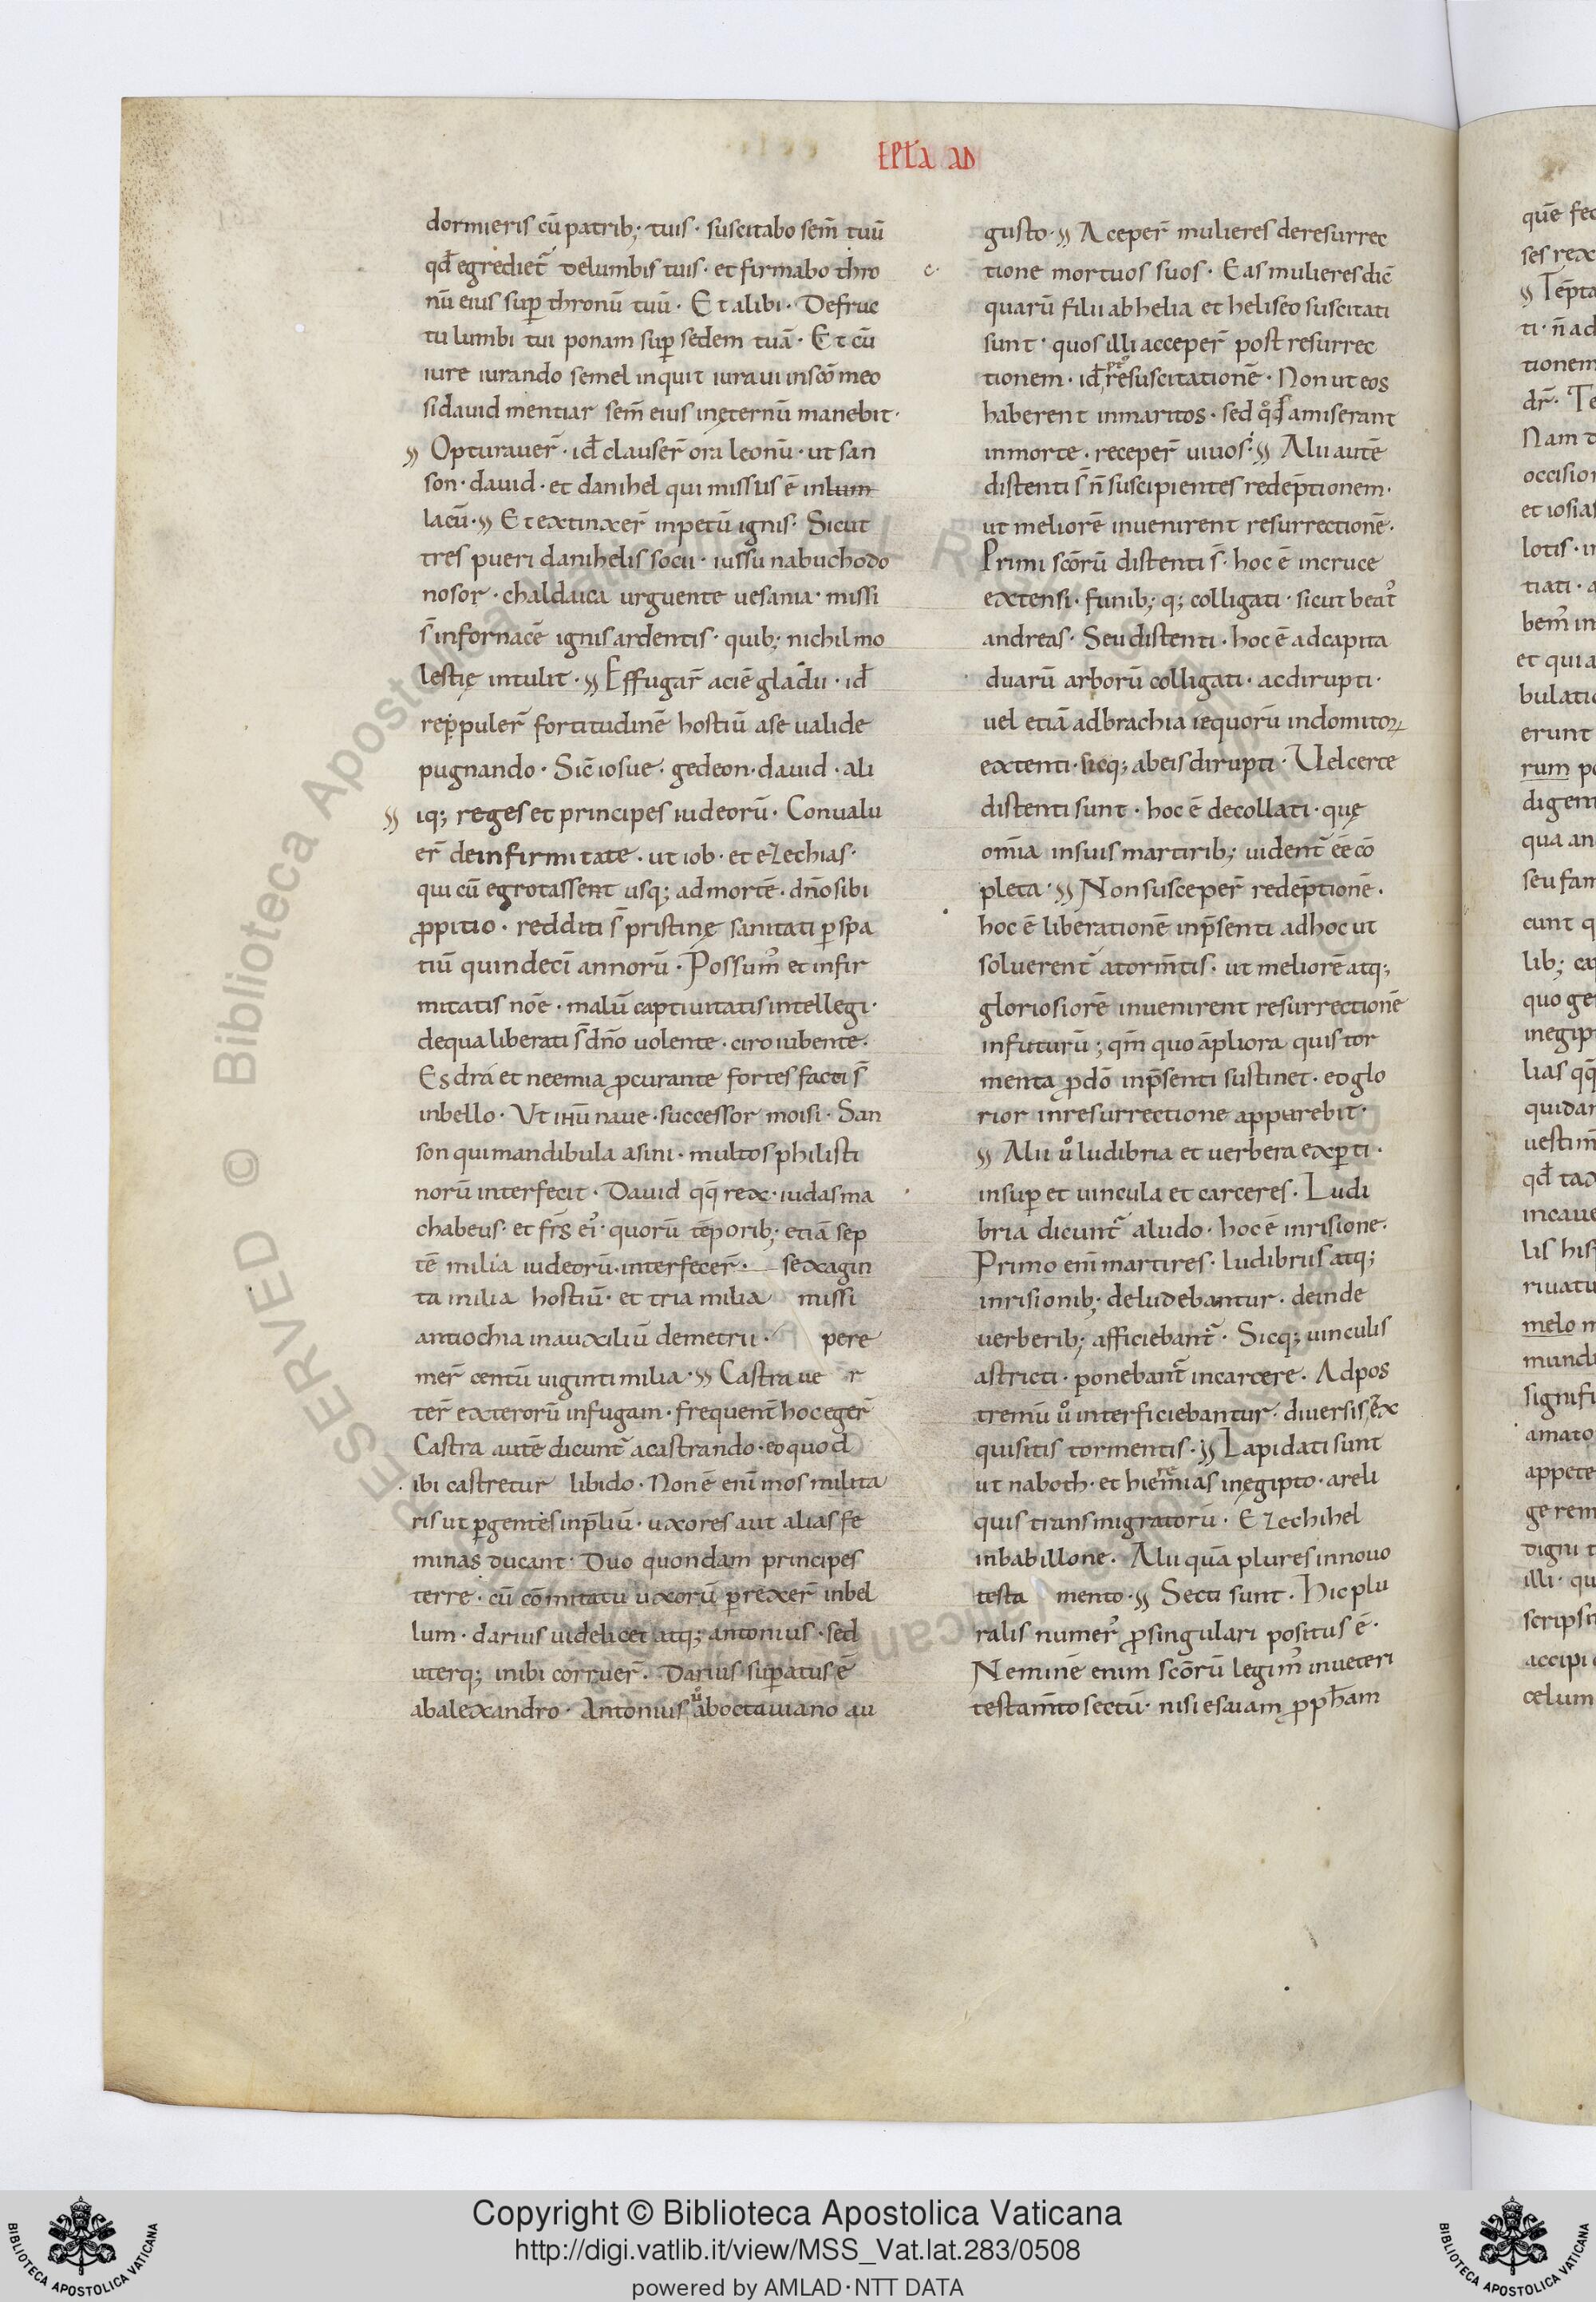 EPLA AD
dormieris cū patrib; tuis · suscitabo sem̄ tuū
qđ egrediet̄ delumbis tuis · et firmabo thro
nū eius suꝑ thronū tuū · Et alibi · Defruc
tu lumbi tui ponam suꝑ sedem tuā · Et cū
iure iurando semel inquit iuraui inscō meo
sidauid mentiar sem̄ eius inęternū manebit ·
Opturauer̄ · id̄ clauser̄ ora leonū · ut san
son · dauid · et danihel qui missus ē inlum
lacū · Et extinxer̄ inpetū ignis · Sicut
tres pueri danihelis socii · iussu nabuchodo
nosor · chaldaica urguente uesania · missi
s̄ infornacē ignis ardentis · quib; nichil mo
lestię intulit · Effugar̄ aciē gladii · id̄
reppuler̄ fortitudinē hostiū ase ualide
pugnando · Sic̄ iosue · gedeon · dauid · ali
iq; reges et principes iudeorū · Conualu
er̄ deinfirmitate · ut iob · et ezechias ·
qui cū egrotassent usq; ad mortē · dn̄o sibi
ꝓpitio · redditi s̄ pristinę sanitati ꝑ spa
tiū quindeci̅ annorū · Possum᾽ et infir
mitatis noē · malū captiuitatis intellegi ·
dequa liberati s̄ dn̄o uolente · ciro iubente ·
Esdra et neemia ꝓcurante fortes facti s̄
inbello · Ut ihū naue · successor moisi · San
son qui mandibula asini · multos philisti
norū interfecit · Dauid qq̄ rex · iudas ma
chabeus · et fr̄s ei᾽ · quorū tēporib; etiā sep
tē milia iudeorū · interfecer̄ · sexagin
ta milia hostiū · et tria milia missi
antiochia inauxiliū demetrii · pere
mer̄ centū uiginti milia · Castra ue r
ter̄ exterorū infugam · frequent̄ hoc eger̄
Castra autē dicunt̄ acastrando · eo quod
ibi castretur libido · Non ē eni̅ mos milita
ris ut ꝑgentes inp̄liū · uxores aut alias fe
minas ducant · Duo quondam principes
terre · cū cōmitatu uxorū ꝑrexer̄ inbel
lum · darius uidelicet atq; antonius · sed
uterq; inibi corruer̄ · Darius suꝑatus ē
abalexandro · Antonius ů aboctauiano au
c ·
gusto · Aceper̄ mulieres deresurrec
tione mortuos suos · Eas mulieres dic̄
quarū filii abhelia et heliseo suscitati
sunt · quos illi acceper̄ post resurrec
tionem · id̄ resuscitationē · Non ut eos
haberent inmaritos · sed qͦs amiserant
inmorte · receper̄ uiuos · Alii autē
distenti s̄ n̄ suscipientes redēptionem ·
ut meliorē inuenirent resurrectionē ·
Primi scōrū distenti s̄ · hoc ē incruce
extensi · funib; q; colligati · sicut beat᾽
andreas · Seu distenti · hoc ē adcapita
duarū arborū colligati · acdirupti ·
uel etiā adbrachia iequorū indomitoꝝ
extenti · sicq; abeis dirupti · Uel certe
distenti sunt · hoc ē decollati · quę
om̄ia insuis martirib; uident̄ eē cō
pleta · Non susceper̄ redēptionē ·
hoc ē liberationē inp̄senti adhoc ut
soluerent̄ atorm̄tis · ut meliorē atq;
gloriosiorē inuenirent resurrectionē
infuturū ; qm̄ quo āpliora quis tor
menta ꝓ dō inp̄senti sustinet · eo glo
rior inresurrectione apparebit ·
Alii ů ludibria et uerbera exꝑti ·
insuꝑ et uincula et carceres · Ludi
bria dicunt̄ aludo · hoc ē inrisione ·
Primo eni̅ martires · ludibriis atq;
inrisionib; deludebantur · deinde
uerberib; afficiebant̄ · Sicq; uinculis
astricti · ponebant̄ incarcere · Adpos
tremū ů interficiebantur · diuersis ex
quisitis tormentis · Lapidati sunt
ut naboth · et hiem̄ias inegipto · areli
quis transmigratorū · Ezechihel
inbabillone · Alii quā plures innouo
testa mento · Secti sunt · Hic plu
ralis numer᾽ ꝓ singulari positus ē ·
Neminē enim scōrū legim᾽ inueteri
testam̄to sectū · nisi esaiam ꝓph̄am
Copyright © Biblioteca Apostolica Vaticana
http://digi.vatlib.it/view/MSS_Vat.lat.283/0508
powered by AMLAD·NTT DATA